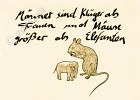 Männer sind klüger als
Frauen und Mäuse
größer als Elefanten